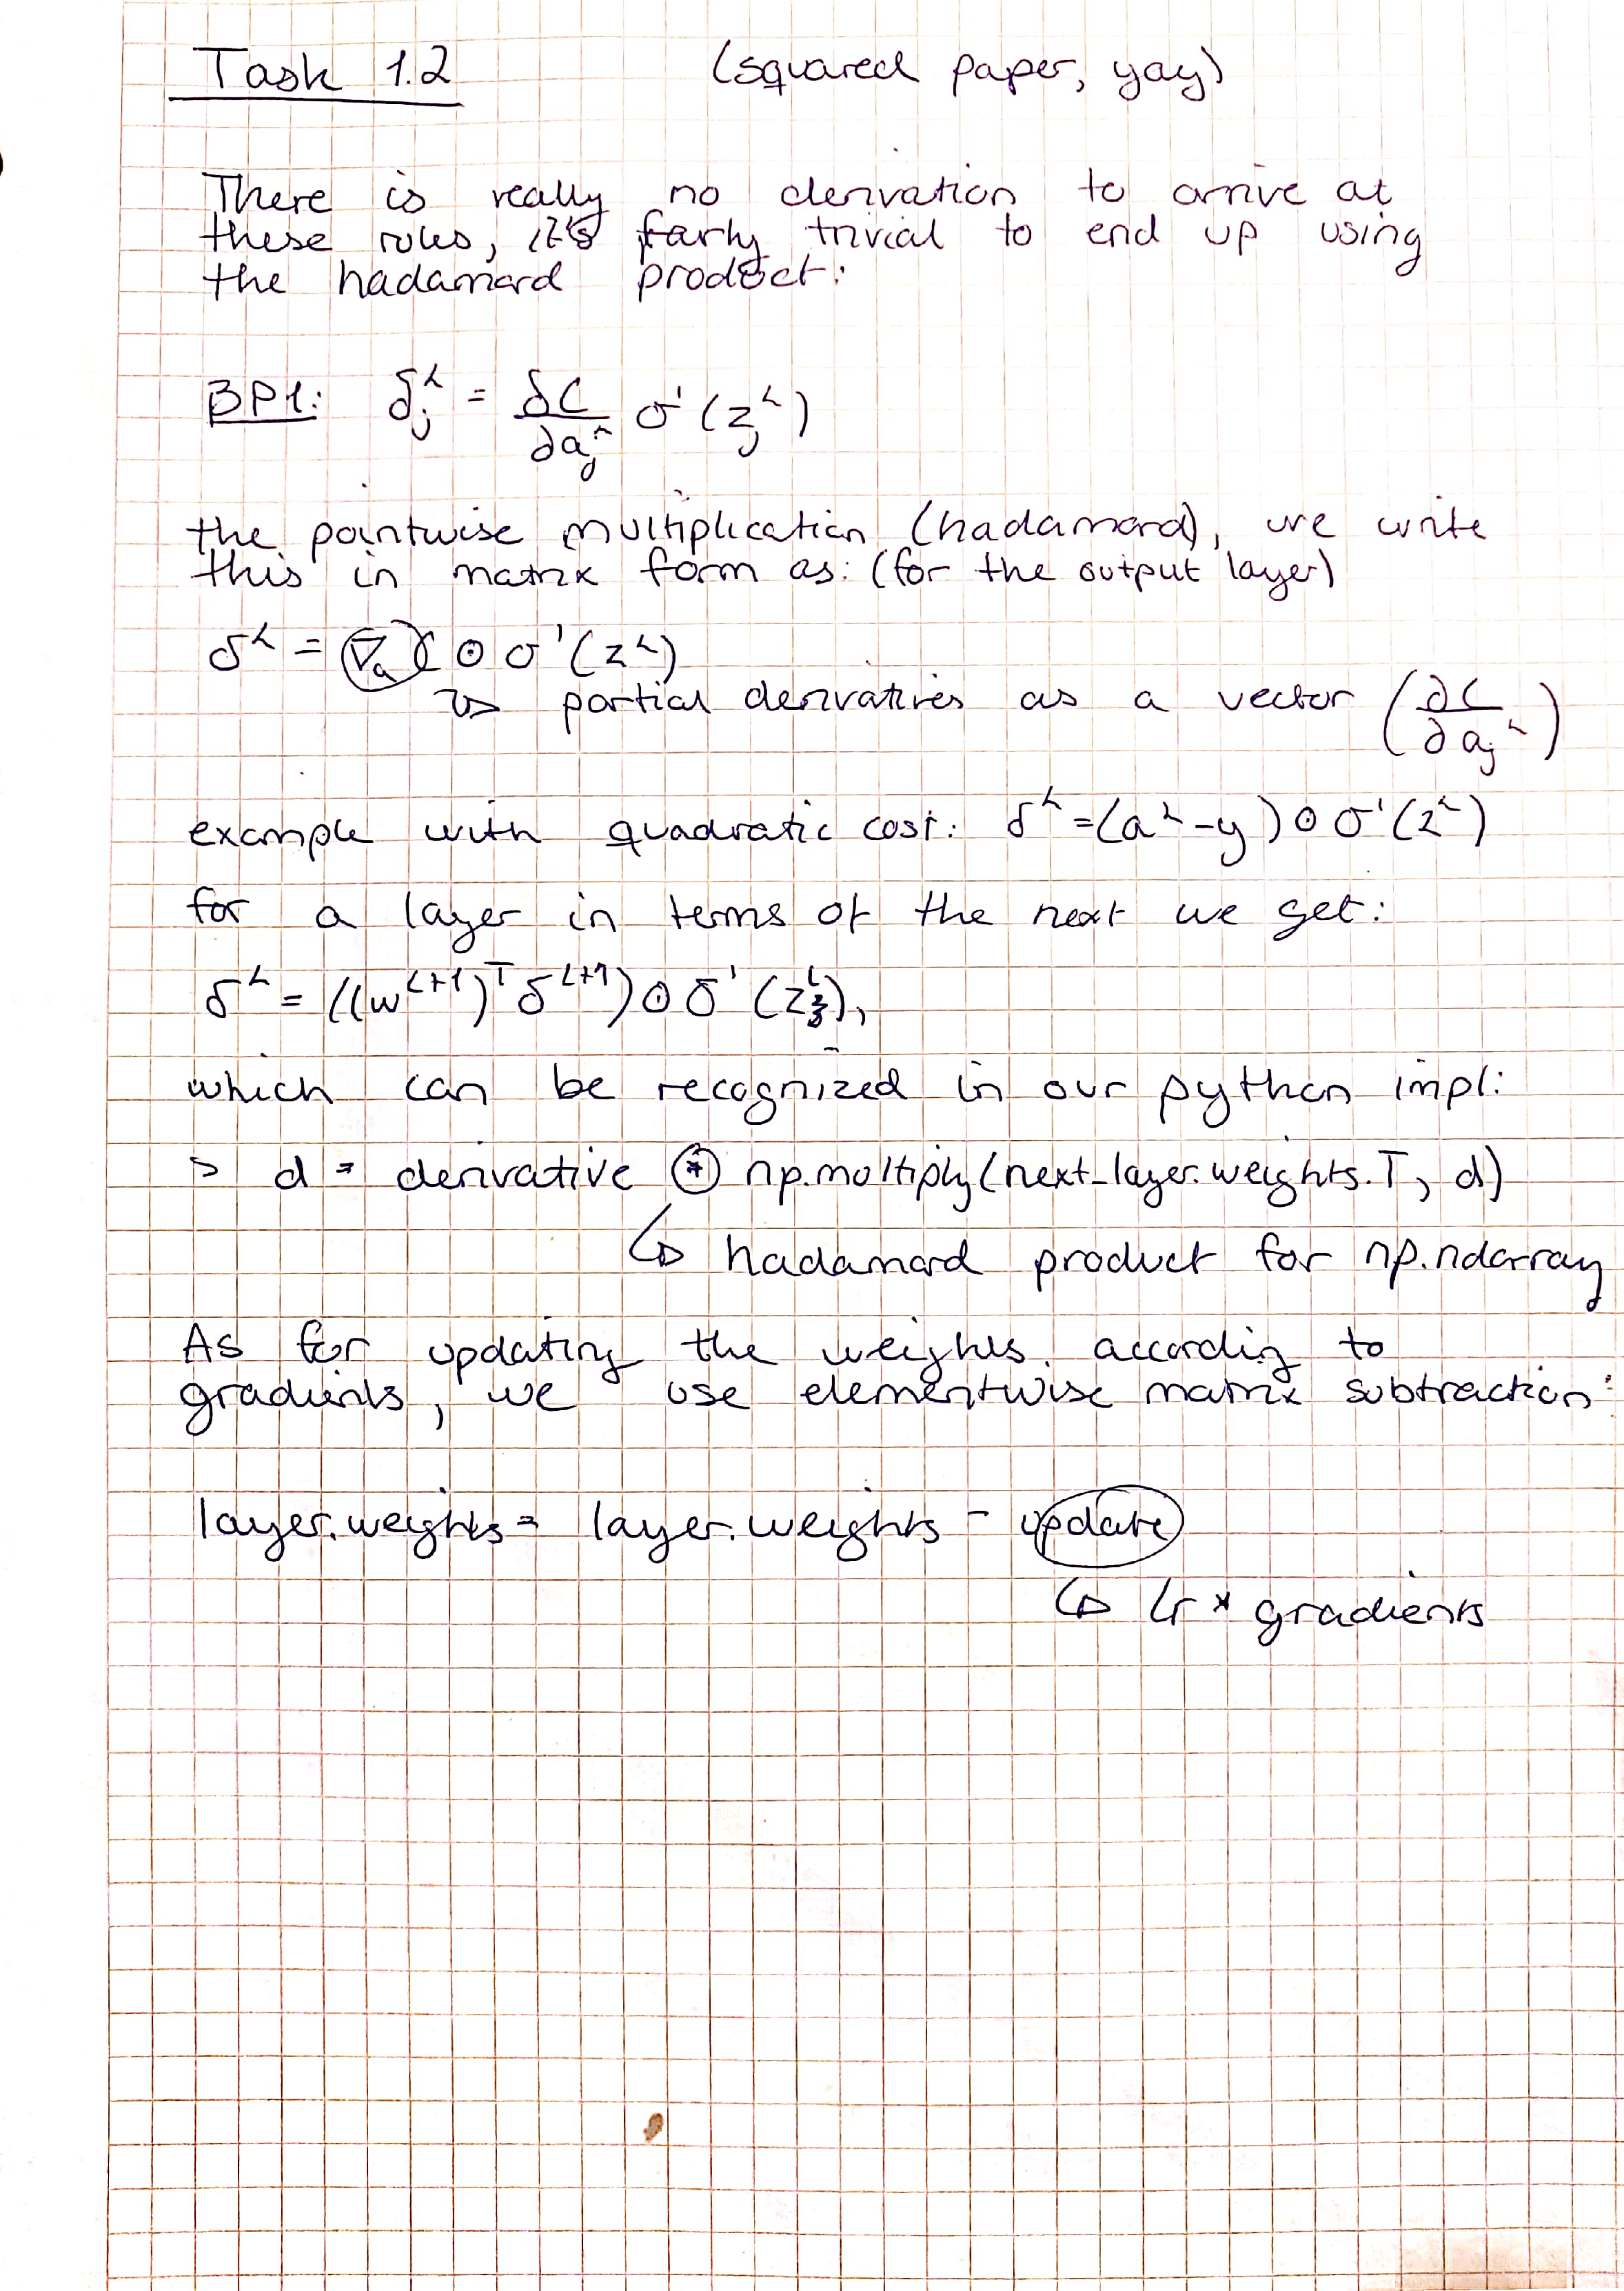 Task 1.2 (squared paper, yay)
There is really no derivation to arrive at
these rules, it's fairly trivial to end up using
the hadamard product:
BP1: δⱼᴸ = ∂C/∂aⱼᴸ σ'(zⱼᴸ)
the pointwise multiplication (hadamard), we write
this in matrix form as: (for the output layer)
δᴸ = ∇ₐC ⊙ σ'(zᴸ)
↳ partial derivatives as a vector (∂C/∂aⱼᴸ)
example with quadratic cost: δᴸ = (aᴸ - y) ⊙ σ'(zᴸ)
for a layer in terms of the next we get:
δᴸ = ((wᴸ⁺¹)ᵀ δᴸ⁺¹) ⊙ σ'(zᴸ),
which can be recognized in our python impl:
> d = derivative * np.multiply(next_layer.weights.T, d)
↳ hadamard product for np.ndarray
As for updating the weights according to
gradients, we use elementwise matrix subtraction:
layer.weights = layer.weights - update
↳ lr * gradients